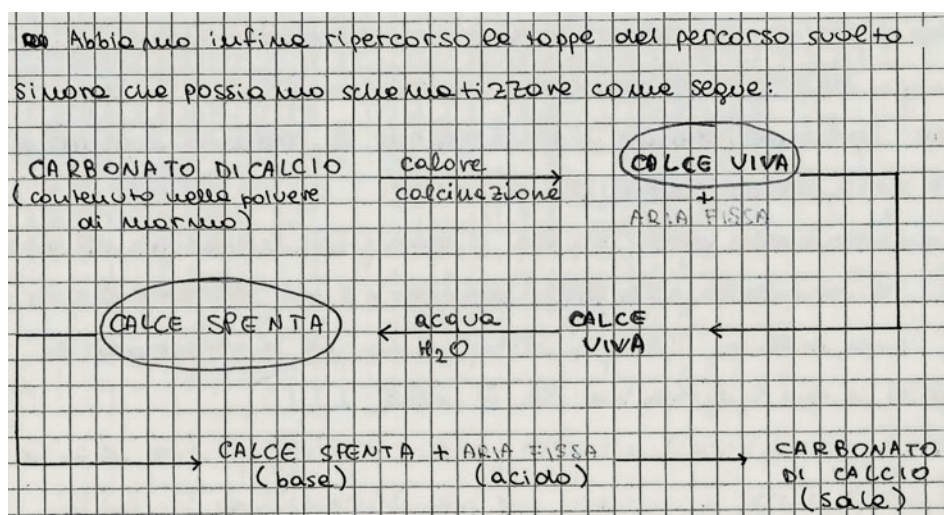 Abbiamo infine ripercorso le tappe del percorso svolto
sinora che possiamo schematizzare come segue:
CARBONATO DI CALCIO
(contenuto nella polvere
di marmo)
calore
calcinazione
CALCE VIVA
+
ARIA FISSA
CALCE SPENTA
acqua
H₂O
CALCE
VIVA
CALCE SPENTA + ARIA FISSA
(base) (acido)
CARBONATO
DI CALCIO
(sale)